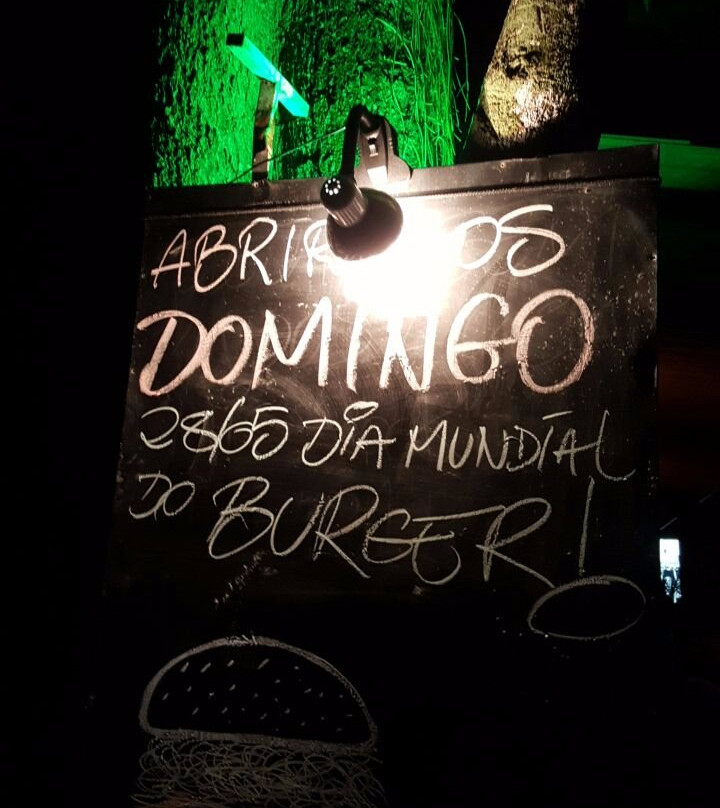 ABRIREMOS
DOMINGO
28/05 DIA MUNDIAL
DO BURGER!